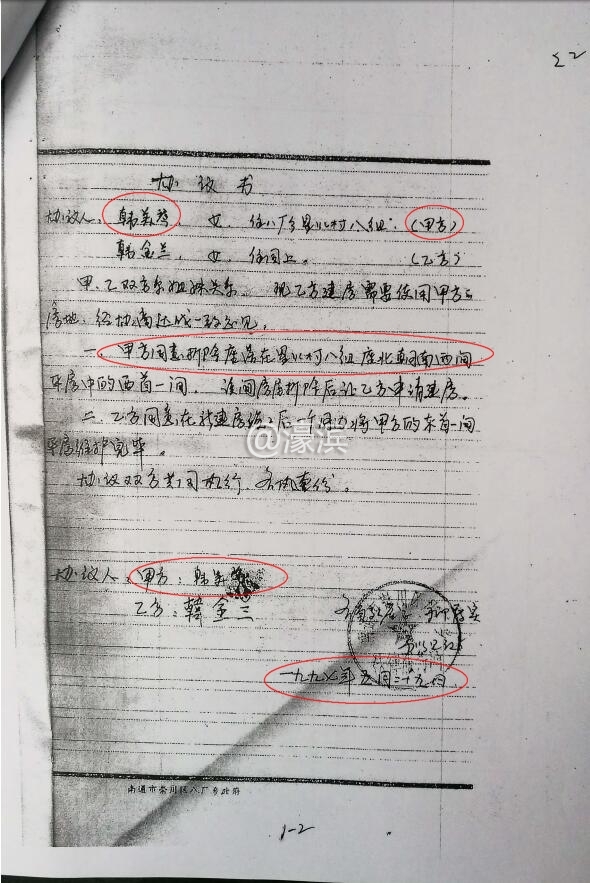 协议书
协议人：韩美琴，女，住八厂乡 村八组．（甲方）
韩金兰，女，住同上．（乙方）
甲、乙双方系姐妹关系． 现乙方建房需要使用甲方
房地，经协商达成一致意见．
一．甲方同意拆除座落在 村八组座北朝南两间
平房中的西首一间．该间房屋拆除后让乙方申请建房。
二．乙方同意在 建房 后一个月内将甲方的东首一间
平房维护完毕。
协议双方共同执行．各执壹份。
协议人：甲方：韩美
乙方：韩金兰
一九九七年五月二十五日
南通市崇川区八厂乡政府
1-2
@濠滨